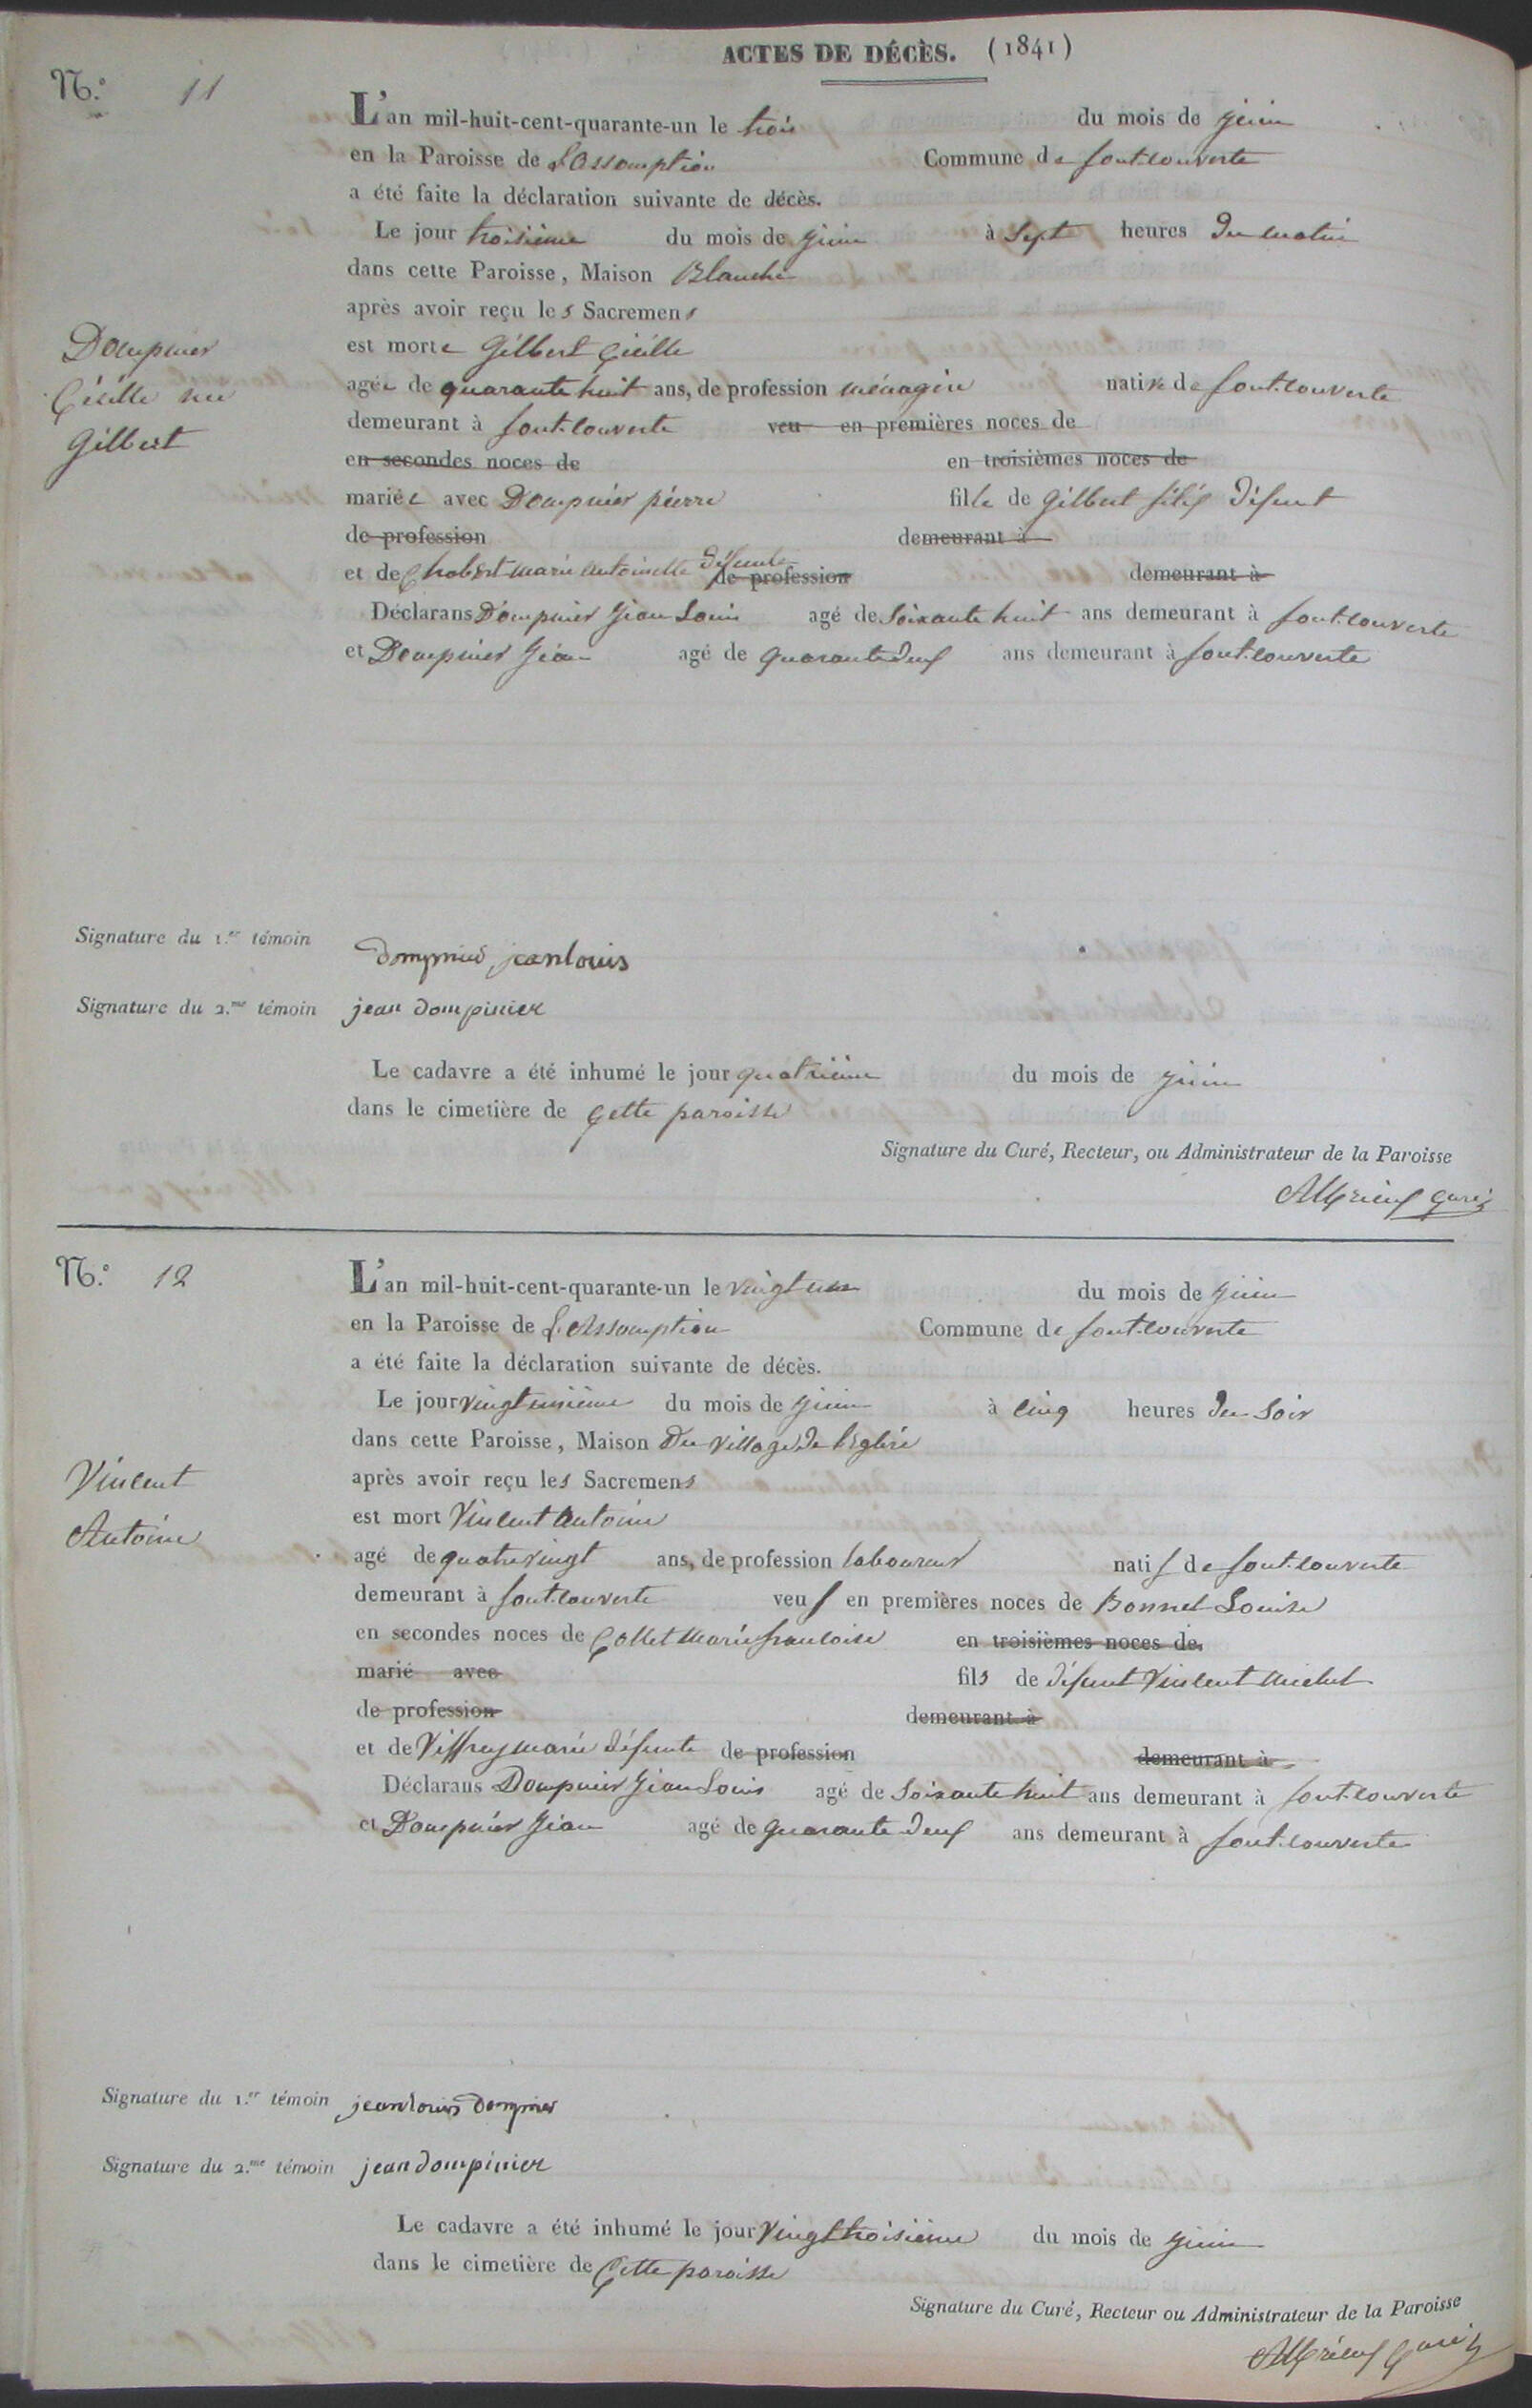 ACTES DE DÉCÈS. (1841)
N.º 11
L'an mil-huit-cent-quarante-un le trois du mois de juin
en la Paroisse de L'assomption Commune de fontcouverte
a été faite la déclaration suivante de décès.
Le jour troisième du mois de juin à Sept heures du matin
dans cette Paroisse, Maison Blanche
après avoir reçu les Sacremens
est morte Gilbert Çécille
agée de quarante huit ans, de profession ménagère native de fontcouverte
demeurant à fontcouverte veu en premières noces de
en secondes noces de en troisièmes noces de
mariée avec Dompnier pierre fille de Gilbert félix défunt
de profession demeurant à
et de Chobert marie antoinette défunte de profession demeurant à
Déclarans Dompnier Jean Louis agé de soixante huit ans demeurant à fontcouverte
et Dompnier Jean agé de quarante deux ans demeurant à fontcouverte
Dompnier
Çécille née
Gilbert
Signature du 1.er témoin dompnier jeanlouis
Signature du 2.me témoin jean dompinier
Le cadavre a été inhumé le jour quatrième du mois de juin
dans le cimetière de Çette paroisse
Signature du Curé, Recteur, ou Administrateur de la Paroisse
Curé
N.º 12
L'an mil-huit-cent-quarante-un le vingt un du mois de juin
en la Paroisse de L'assomption Commune de fontcouverte
a été faite la déclaration suivante de décès.
Le jour vingtunième du mois de juin à cinq heures du soir
dans cette Paroisse, Maison du village de l'église
après avoir reçu les Sacremens
est mort Vincent Antoine
agé de quatrevingt ans, de profession laboureur natif de fontcouverte
demeurant à fontcouverte veuf en premières noces de Bonnel Louise
en secondes noces de Çollet Marie francoise en troisièmes noces de
marié avec fils de défunt Vincent michel
de profession demeurant à
et de Viffrey marie défunte de profession demeurant à
Déclarans Dompnier Jean Louis agé de soixante huit ans demeurant à fontcouverte
et Dompnier Jean agé de quarante deux ans demeurant à fontcouverte
Vincent
Antoine
Signature du 1.er témoin jeanlouis dompnier
Signature du 2.me témoin jean dompinier
Le cadavre a été inhumé le jour vingttroisième du mois de juin
dans le cimetière de Çette paroisse
Signature du Curé, Recteur ou Administrateur de la Paroisse
Curé